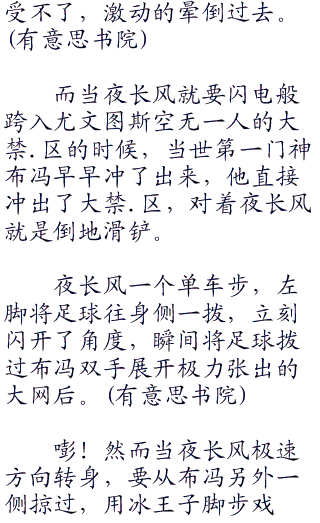 受不了，激动的晕倒过去。
(有意思书院)
而当夜长风就要闪电般
跨入尤文图斯空无一人的大
禁.区的时候，当世第一门神
布冯早早冲了出来，他直接
冲出了大禁.区，对着夜长风
就是倒地滑铲。
夜长风一个单车步，左
脚将足球往身侧一拨，立刻
闪开了角度，瞬间将足球拨
过布冯双手展开极力张出的
大网后。(有意思书院)
嘭！然而当夜长风极速
方向转身，要从布冯另外一
侧掠过，用冰王子脚步戏